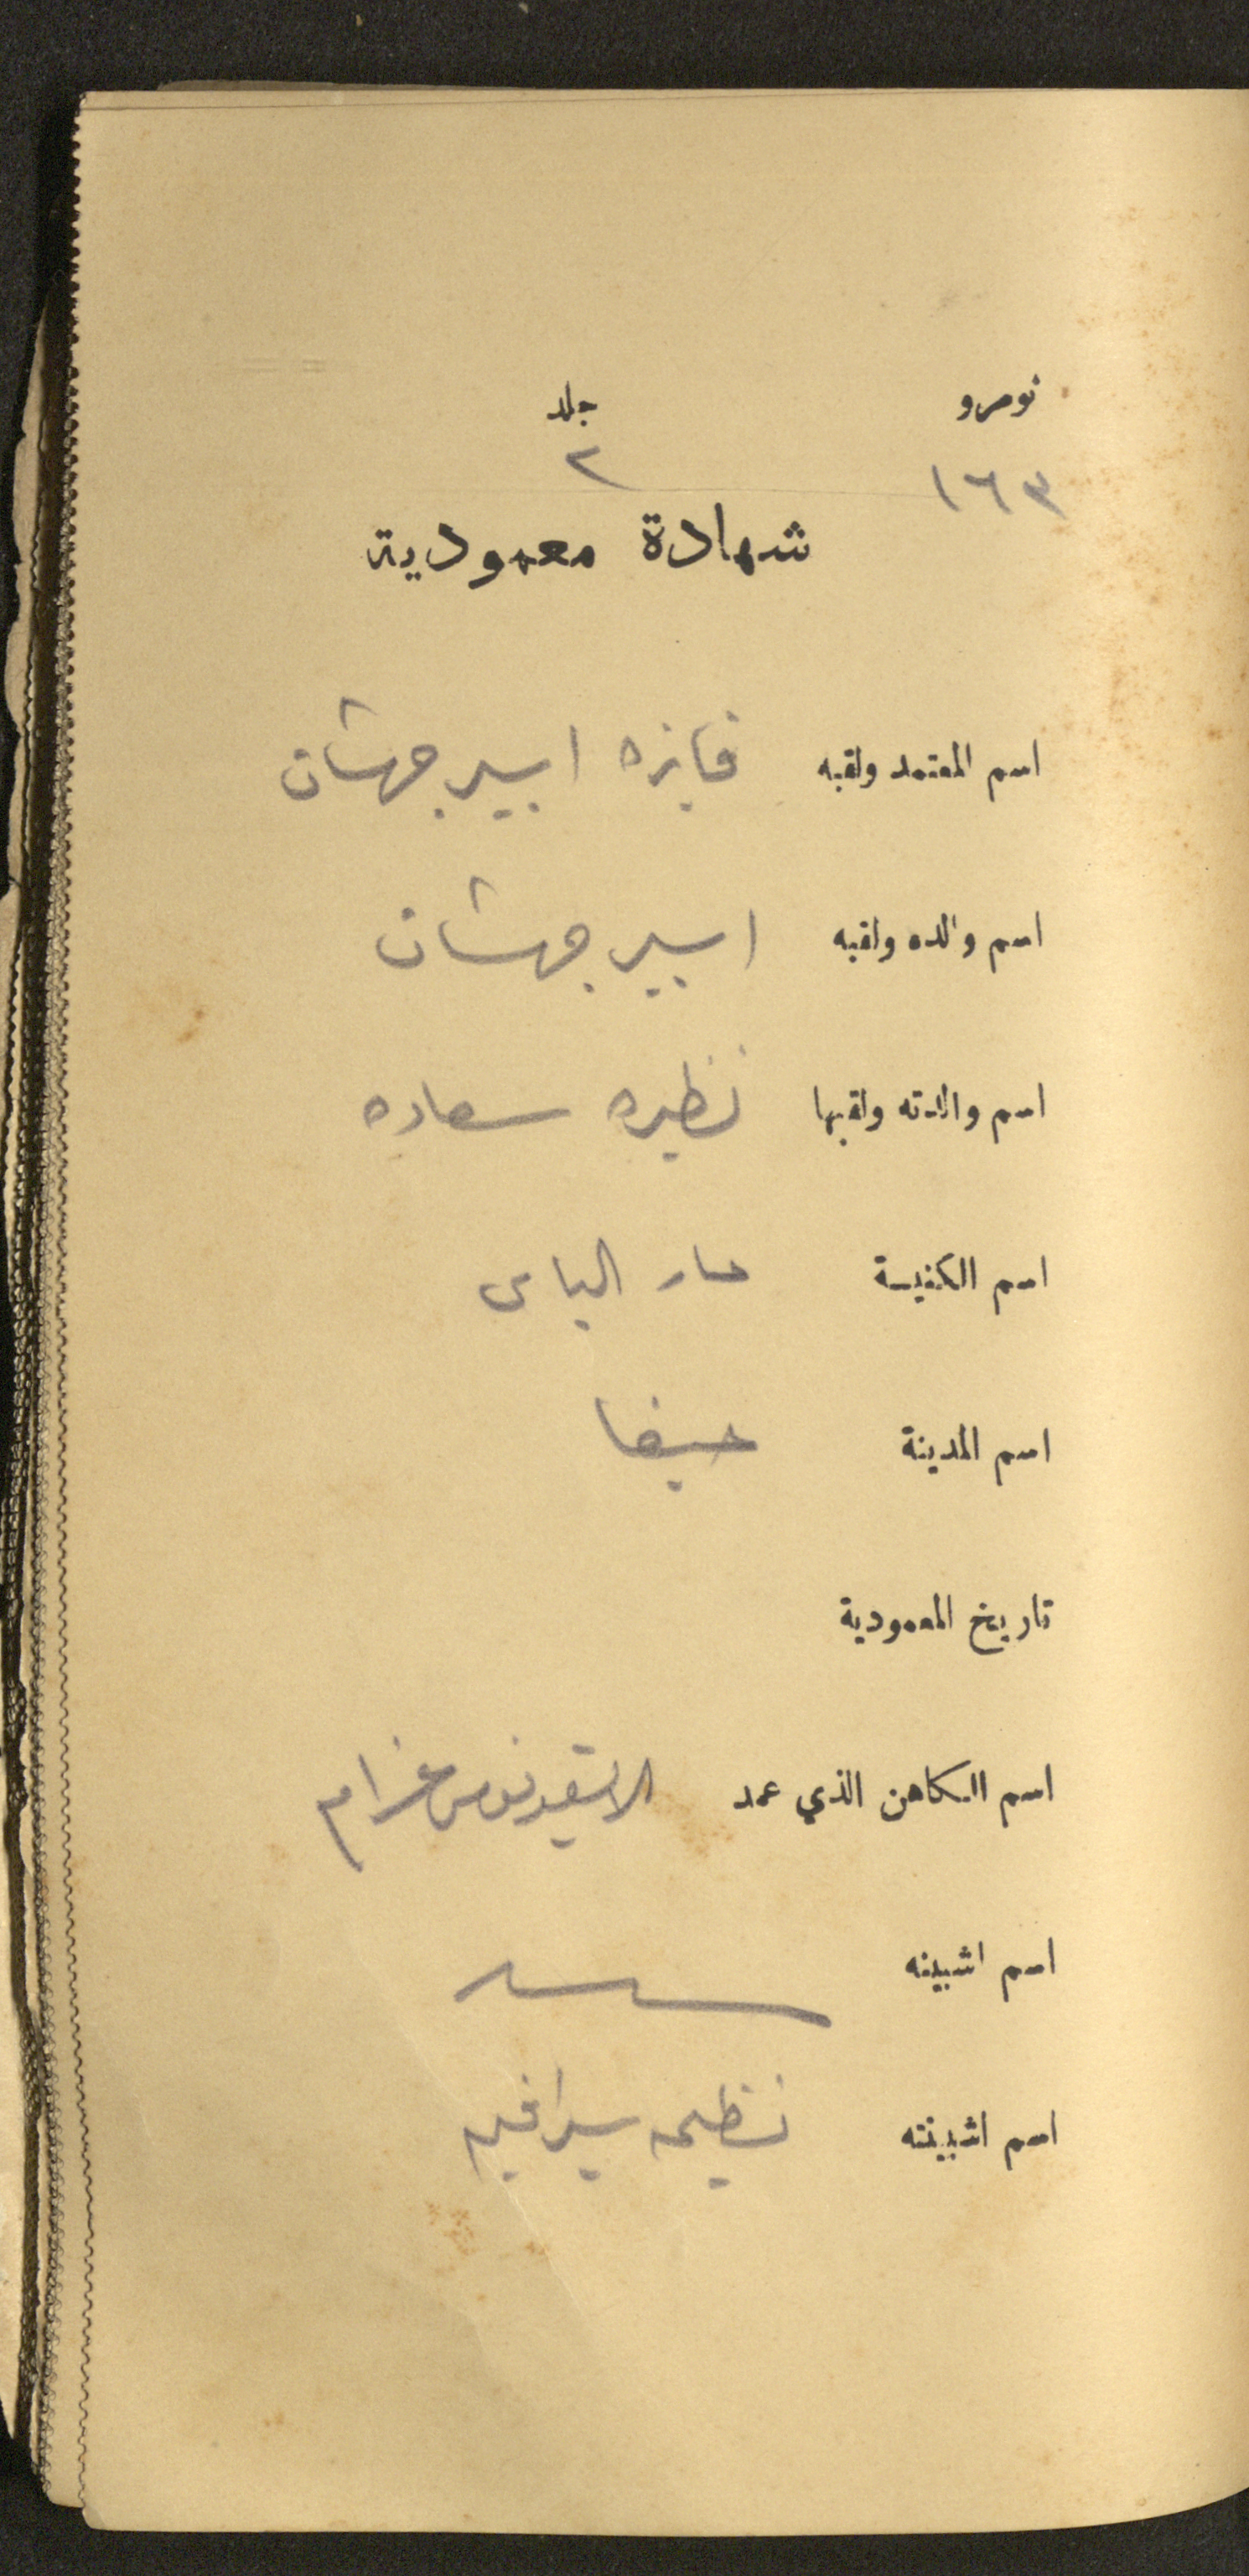 نومرو جلد
١٦٣ ٢
شهادة معمودية
اسم المعتمد ولقبه فايزه اسبير جهشان
اسم والده ولقبه اسبير جهشان
اسم والدته ولقبها نظيره سعاده
اسم الكنيسة مار الياس
اسم المدينة حيفا
تاريخ المعمودية
اسم الكاهن الذي عمد غرام
اسم اشبينه
اسم اشبينته نظيمه سيرافيم